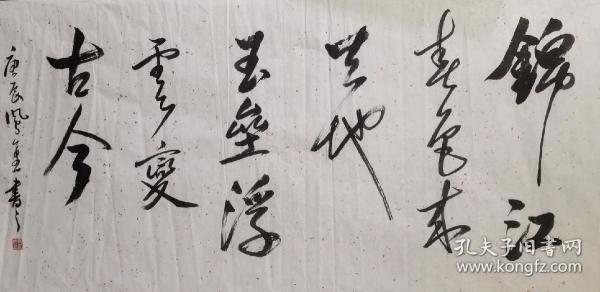 錦江
春色來
天地
玉壘浮
雲變
古今
庚辰鳳書之
孔夫子旧书网
www.kongfz.com